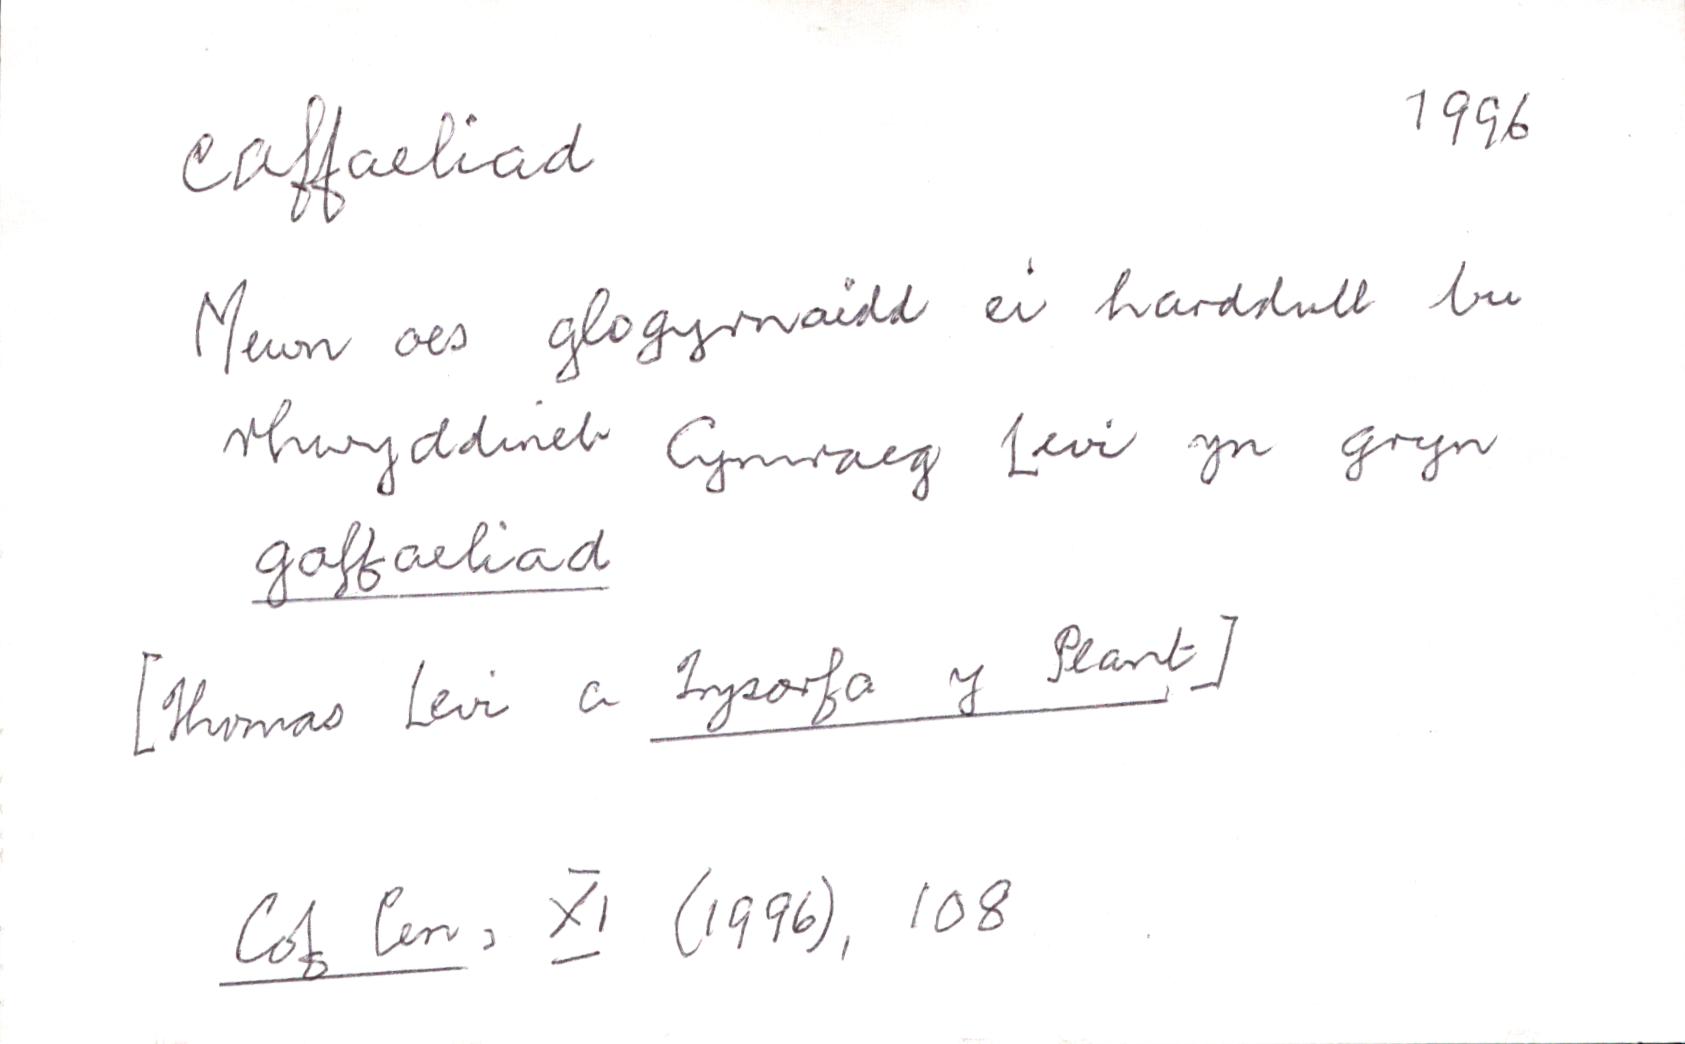 caffaeliad 1996
Mewn oes glogyrnaidd ei harddull bu
rhwyddineb Cymraeg Levi yn gryn
gaffaeliad
[Thomas Levi a Trysorfa y Plant]
Cof Cen, XI (1996), 108